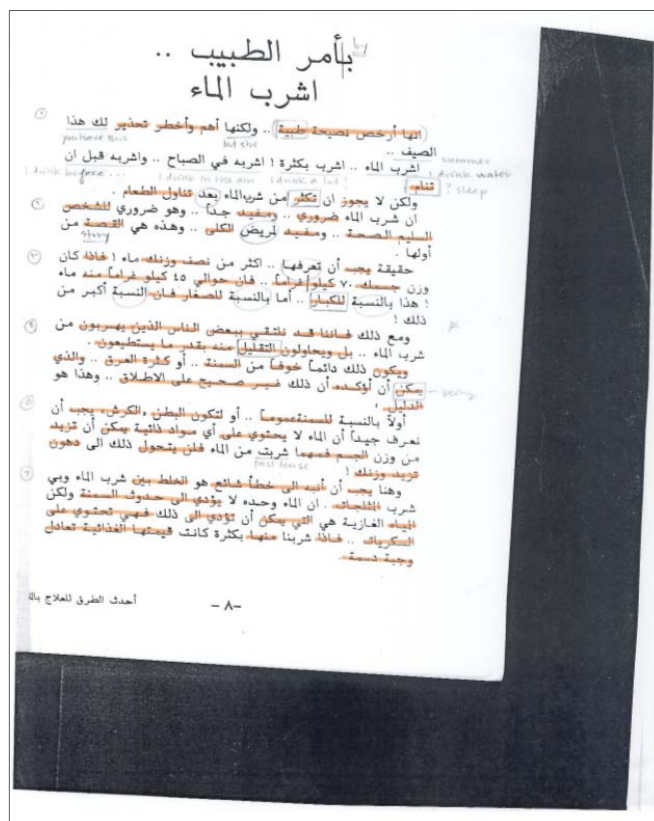 بأمر الطبيب ..
اشرب الماء
انها أرخص نصيحة طبية .. ولكنها أهم وأخطر تحذير لك هذا
you have this
but she
الصيف ..
summer
اشرب الماء .. اشرب بكثرة ! اشربه في الصباح .. واشربه قبل ان
drink water
I drink before ...
I drink in the am
I drink a lot !
تنام !
? sleep
ولكن لا يجوز ان تكثر من شرب الماء بعد تناول الطعام .
ان شرب الماء ضروري .. ومفيد جداً .. وهو ضروري للشخص
السليم الصحة .. ومفيد لمريض الكلى .. وهذه هي القصة من
story
أولها .
حقيقة يجب أن تعرفها .. اكثر من نصف وزنك ماء ! فاذا كان
وزن جسمك ٧٠ كيلو غراماً .. فان حوالي ٤٥ كيلو غراماً منه ماء
! هذا بالنسبة للكبار .. أما بالنسبة للصغار فان النسبة أكبر من
ذلك !
ومع ذلك فاننا قد نلتقي ببعض الناس الذين يهربون من
شرب الماء .. بل ويحاولون التقليل منه بقدر ما يستطيعون .
ويكون ذلك دائماً خوفاً من السمنة .. أو كثرة العرق .. والذي
يمكن أن أؤكده أن ذلك غير صحيح على الاطلاق .. وهذا هو
الدليل !
أولاً بالنسبة للسمنة عموماً .. أو لتكون البطن «الكرش» يجب أن
نعرف جيداً أن الماء لا يحتوي على أي مواد غذائية يمكن أن تزيد
من وزن الجسم فمهما شربت من الماء فلن يتحول ذلك الى دهون
past tense
تزيد وزنك !
وهنا يجب أن أنبه الى خطأ شائع هو الخلط بين شرب الماء وبي
شرب المثلجات . ان الماء وحده لا يؤدي الى حدوث السمنة ولكن
المياه الغازية هي التي يمكن أن تؤدي الى ذلك فهي تحتوي على
السكريات .. فاذا شربنا منها بكثرة كانت قيمتها الغذائية تعادل
وجبة دسمة .
– ٨ –
أحدث الطرق للعلاج بالـ